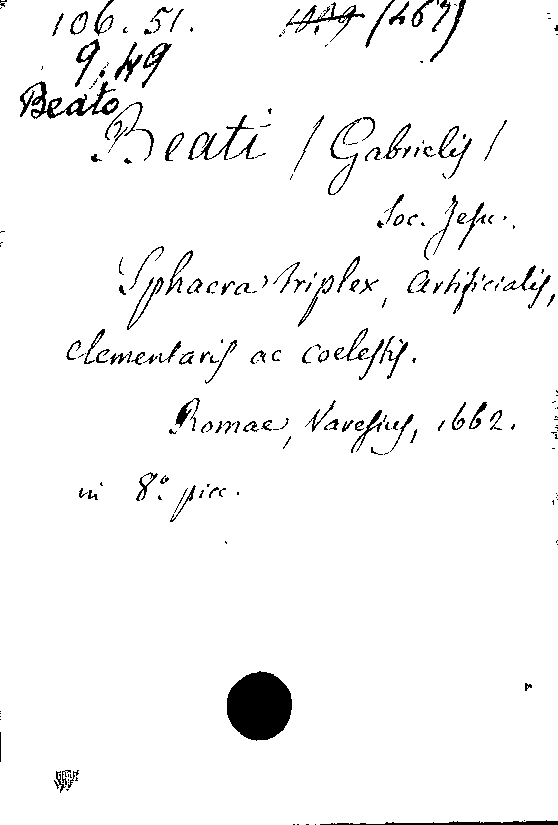 106. 51. 10.9 (267)
9.49
Beato
Beati (Gabrielis)
Soc. Jesu.
Sphaera triplex, artificialis,
elementaris ac coelestis.
Romae, Varesius, 1662.
in 8.° picc.